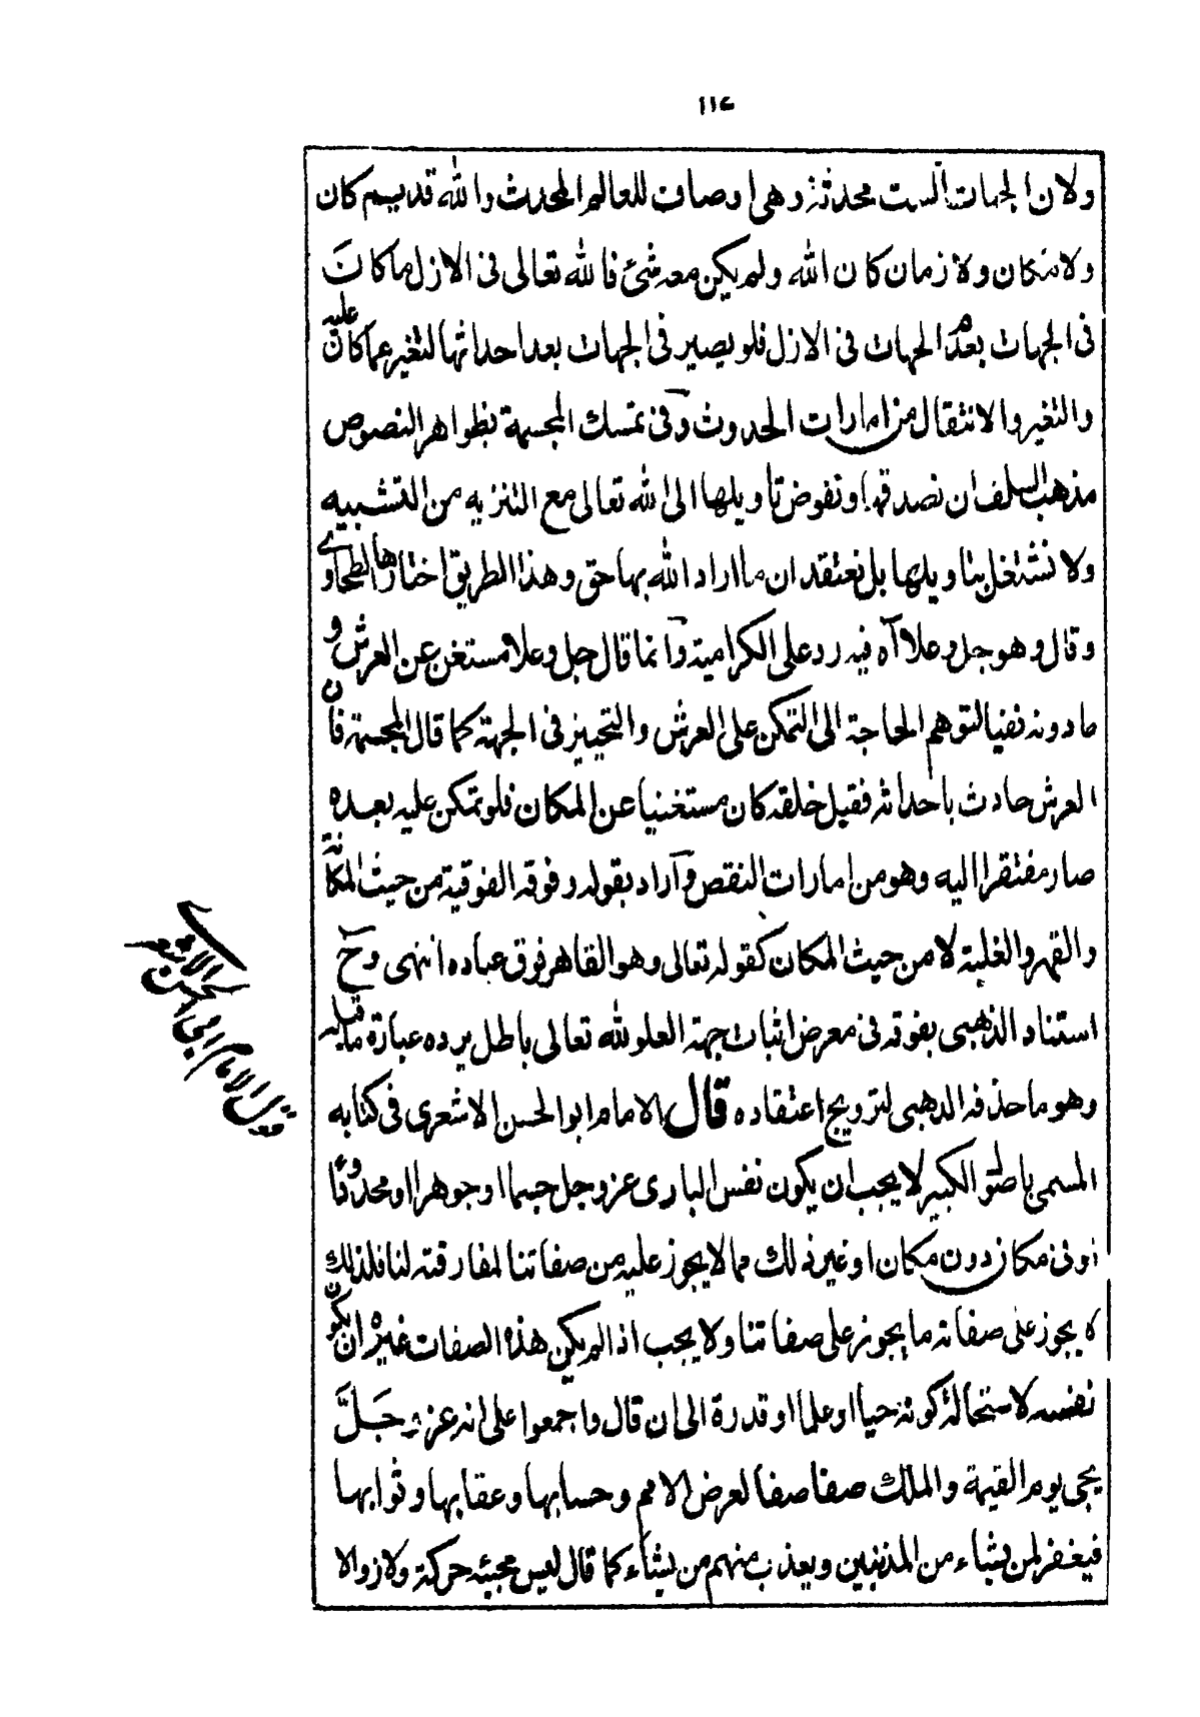 ١١٤
ولان الجهات الست محدثة وهى اوصاف للعالم المحدث والله قديم كان
ولا مكان ولا زمان كان الله ولم يكن معه شئ فالله تعالى فى الازل ما كان
فى الجهات بعدم الجهات فى الازل فلو يصير فى الجهات بعد احداثها لتغير عما كان عليه
والتغير والانتقال من امارات الحدوث وفى تمسك المجسمة بظواهر النصوص
مذهب السلف ان نصدقها ونفوض تاويلها الى الله تعالى مع التنزيه من التشبيه
ولا نشتغل بتاويلها بل نعتقد ان ما اراد الله بها حق وهذا الطريق اختارها الطحاوى
وقال وهو جل وعلا آه فيه رد على الكرامية وانما قال جل وعلا مستغن عن العرش و
ما دونه نفيا لتوهم الحاجة الى التمكن على العرش والتحيز فى الجهة كما قال المجسمة فان
العرش حادث باحداثه فقبل خلقه كان مستغنيا عن المكان فلو تمكن عليه بعده
صار مفتقرا اليه وهو من امارات النقص واراد بقوله وفوقه الفوقية من حيث المكانة
والقهر والغلبة لا من حيث المكان كقوله تعالى وهو القاهر فوق عباده انتهى وح
استناد الذهبى بفوقه فى معرض اثبات جهة العلو لله تعالى باطل يرده عبارة ما قبله
وهو ما حذفه الذهبى لترويج اعتقاده قال الامام ابو الحسن الاشعرى فى كتابه
المسمى باصول الكبير لا يجب ان يكون نفس البارى عز وجل جسما او جوهرا او محدودا
او فى مكان دون مكان او غير ذلك مما لا يجوز عليه من صفاتنا لمفارقته لنا فلذلك
لا يجوز على صفاته ما يجوز على صفاتنا ولا يجب اذا لم يكن هذه الصفات غيره ان يكون
نفسه لاستحالة كونه حيا او علما او قدرة الى ان قال واجمعوا على انه عز وجل
يجئ يوم القيمة والملك صفا صفا لعرض الامم وحسابها وعقابها وثوابها
فيغفر لمن يشاء من المذنبين ويعذب منهم من يشاء كما قال ليس مجيئه حركة ولا زوالا
قول الامام ابى الحسن الاشعرى